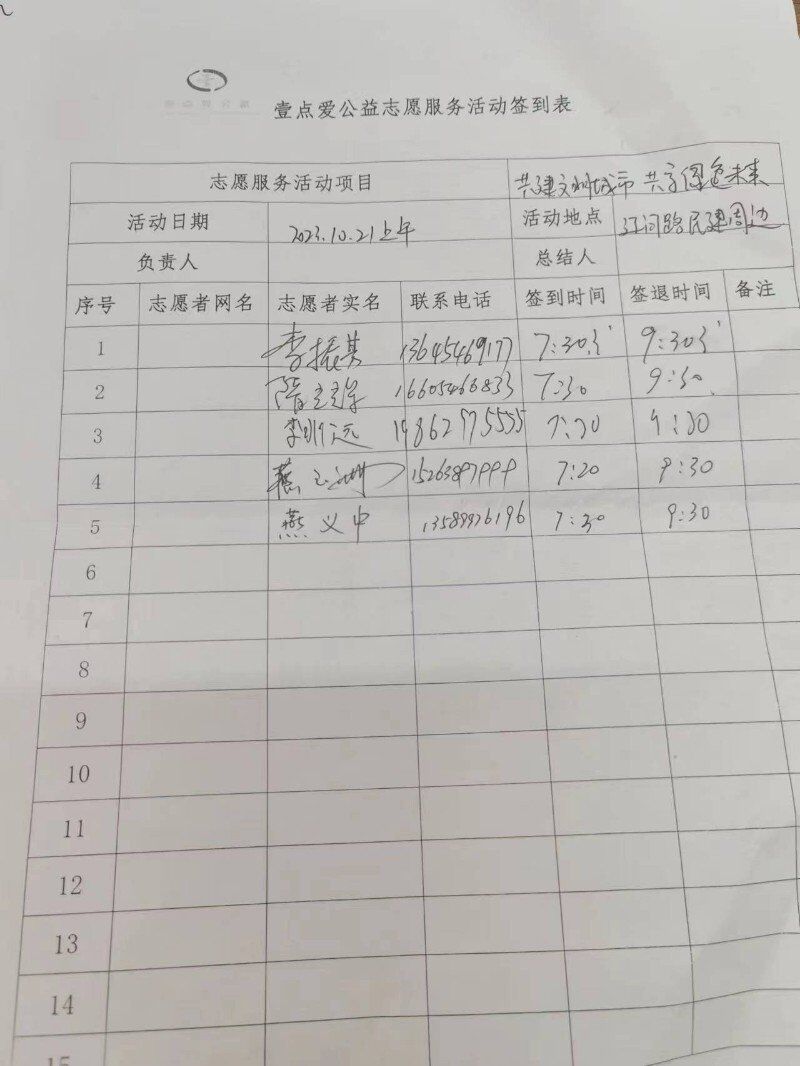 壹点爱公益志愿服务活动签到表
志愿服务活动项目 共建文明城市 共享绿色未来
活动日期 2023.10.21上午 活动地点 周边
负责人 总结人
序号 志愿者网名 志愿者实名 联系电话 签到时间 签退时间 备注
1 李振英 13645469177 7:30分 9:30分
2 16605466833 7:30 9:30
3 19862775555 7:30 9:30
4 燕 7:20 9:30
5 燕义中 7:30 9:30
6
7
8
9
10
11
12
13
14
15